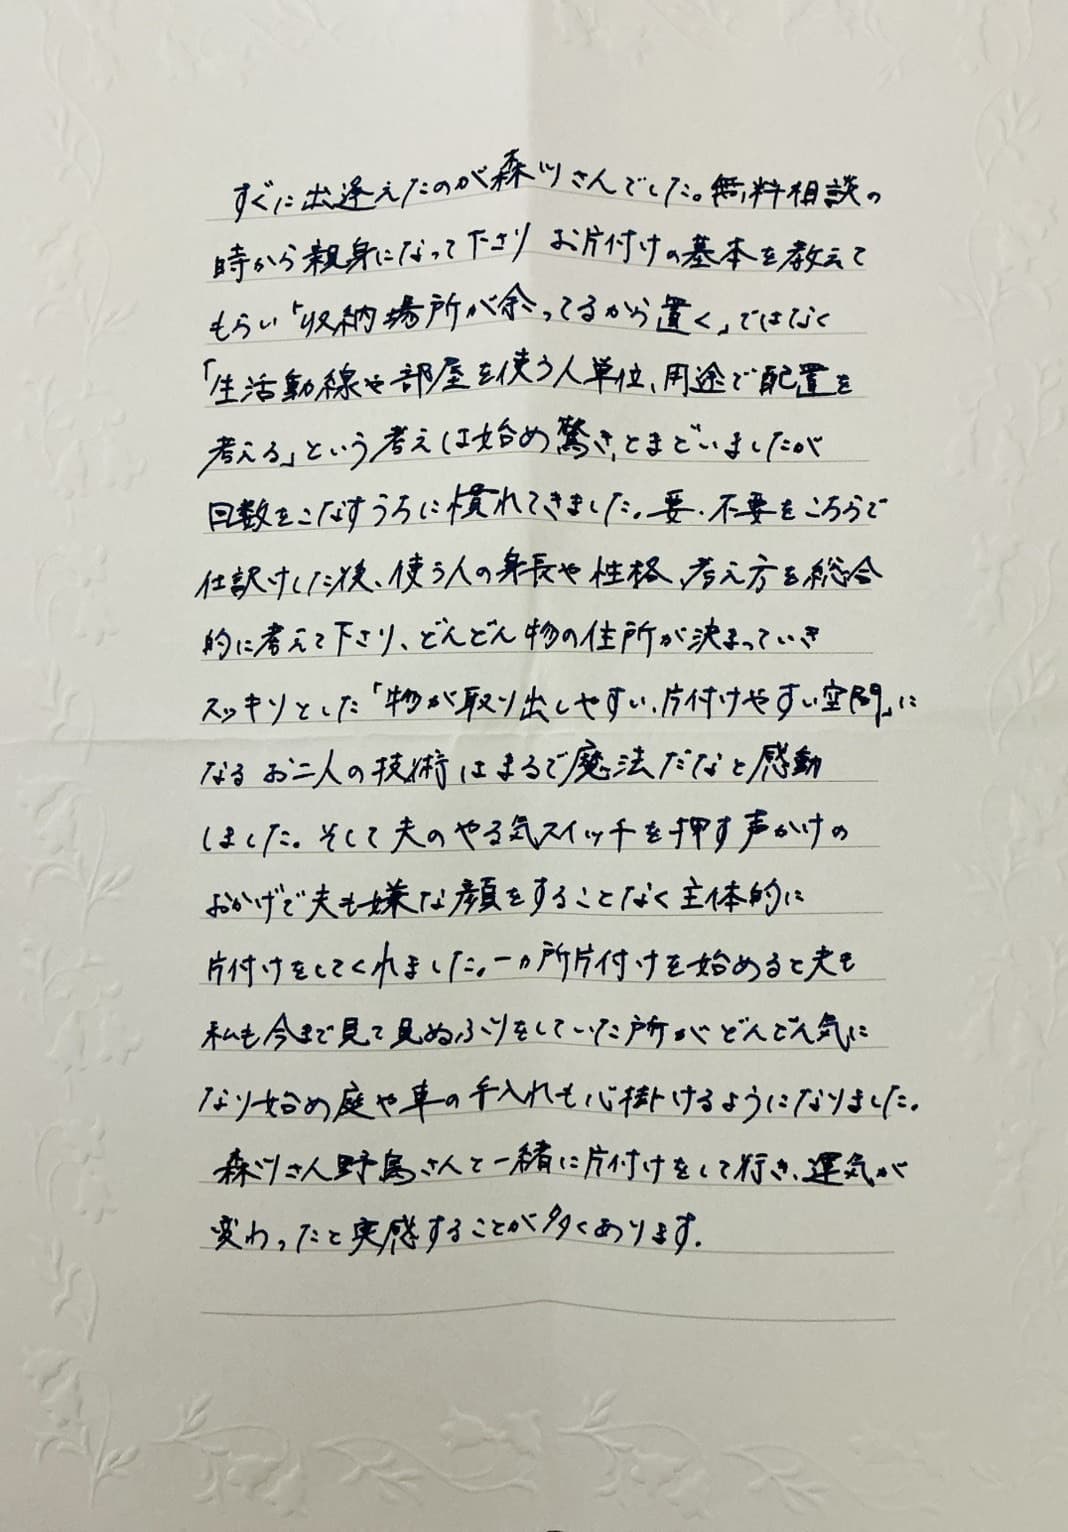 すぐに出逢えたのが森川さんでした。無料相談の
時から親身になって下さり お片付けの基本を教えて
もらい「収納場所が余ってるから置く」ではなく
「生活動線や部屋を使う人単位、用途で配置を
考える」という考えは始め驚き、とまどいましたが
回数をこなすうちに慣れてきました。要・不要をこちらで
仕訳けした後、使う人の身長や性格、考え方を総合
的に考えて下さり、どんどん物の住所が決まっていき
スッキリとした「物が取り出しやすい、片付けやすい空間」に
なるお二人の技術はまるで魔法だなと感動
しました。そして夫のやる気スイッチを押す声かけの
おかげで夫も嫌な顔をすることなく主体的に
片付けをしてくれました。一カ所片付けを始めると夫も
私も今まで見て見ぬふりをしていた所がどんどん気に
なり始め庭や車の手入れも心掛けるようになりました。
森川さん野島さんと一緒に片付けをして行き、運気が
変わったと実感することが多くあります。